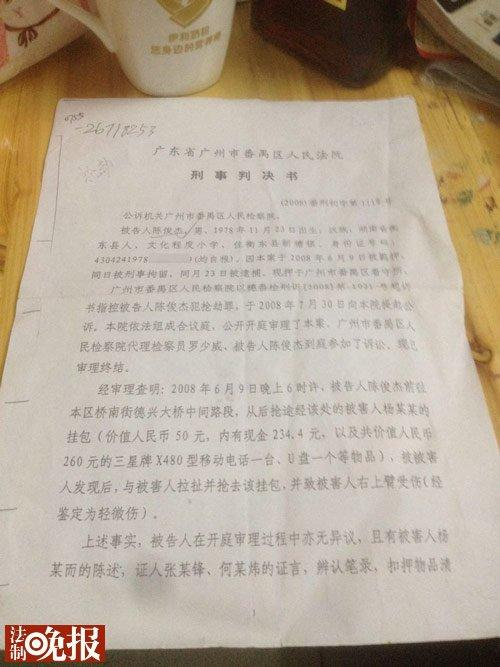 伊利奶粉
您身边的营养师
0755
-26718253
广东省广州市番禺区人民法院
刑事判决书
(2008)番刑初字第1118号
公诉机关广州市番禺区人民检察院。
被告人陈俊杰,男,1978年11月23日出生,汉族,湖南省衡
东县人,文化程度小学,住衡东县新塘镇,身份证号码:
4304241978 (均自报)。因本案于2008年6月9日被羁押,
同日被刑事拘留,同月23日被逮捕。现押于广州市番禺区看守所。
广州市番禺区人民检察院以穗番检刑诉[2008]第1931号起诉
书指控被告人陈俊杰犯抢劫罪,于2008年7月30日向本院提起公
诉。本院依法组成合议庭,公开开庭审理了本案,广州市番禺区人
民检察院代理检察员罗少威、被告人陈俊杰到庭参加了诉讼。现已
审理终结。
经审理查明:2008年6月9日晚上6时许,被告人陈俊杰前往
本区桥南街德兴大桥中间路段,从后抢途经该处的被害人杨某某的
挂包(价值人民币50元,内有现金234.4元,以及共价值人民币
260元的三星牌X480型移动电话一台、U盘一个等物品),被被害
人发现后,与被害人拉扯并抢去该挂包,并致被害人右上臂受伤(经
鉴定为轻微伤)。
上述事实,被告人在开庭审理过程中亦无异议,且有被害人杨
某而的陈述;证人张某锋、何某炜的证言,辨认笔录,扣押物品清
1
法制晚报